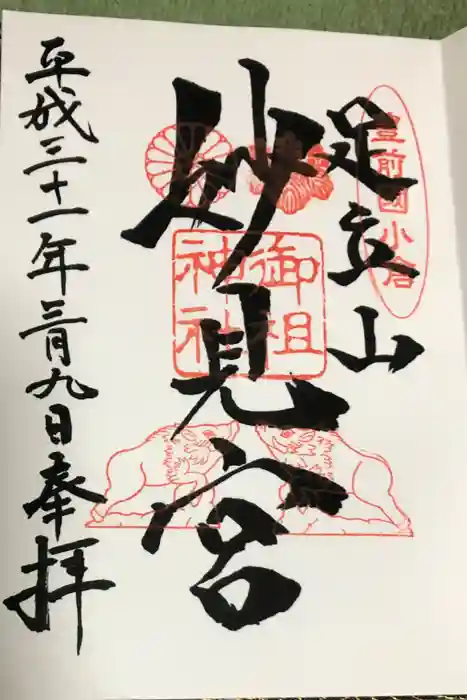 豊前國小倉
足立山
妙見宮
御祖神社
平成三十一年三月九日奉拝